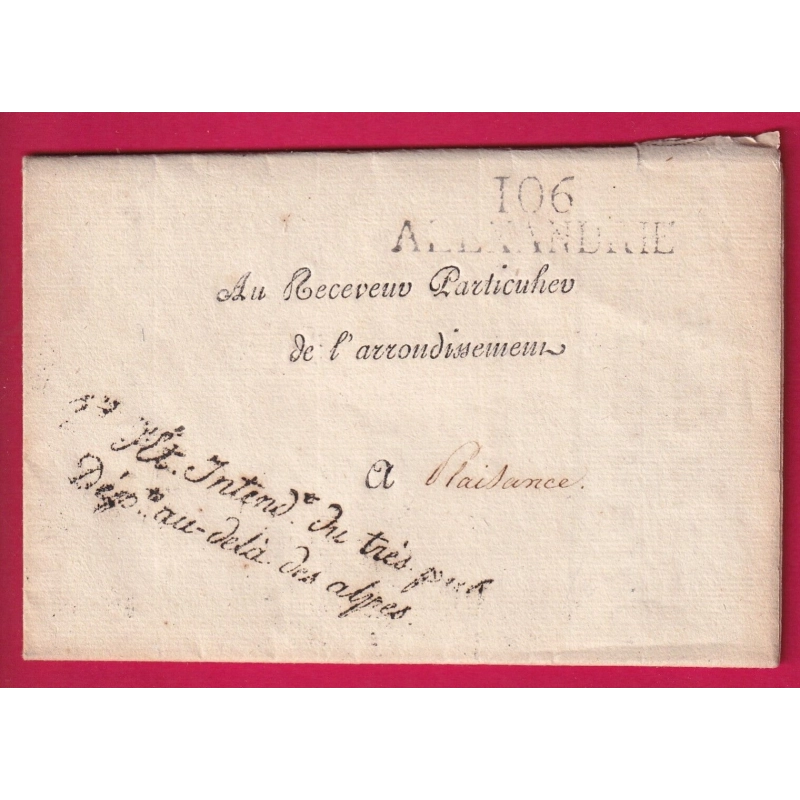 106
ALEXANDRIE
Au Receveur Particulier
de l'arrondissement
a Plaisance.
Intend.t Du très. pub
Dép.ts au-delà des alpes.